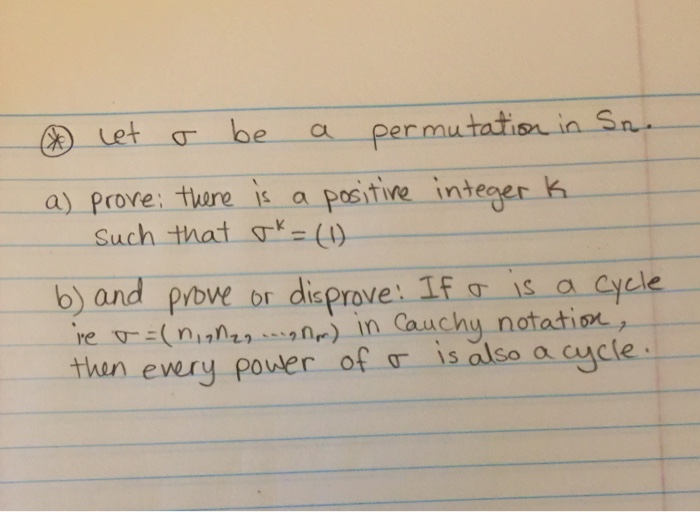 ⊛ Let σ be a permutation in Sn.
a) prove: there is a positive integer K
such that σᵏ = (1)
b) and prove or disprove: If σ is a cycle
ie σ = (n₁, n₂, ..., nₘ) in Cauchy notation,
then every power of σ is also a cycle.